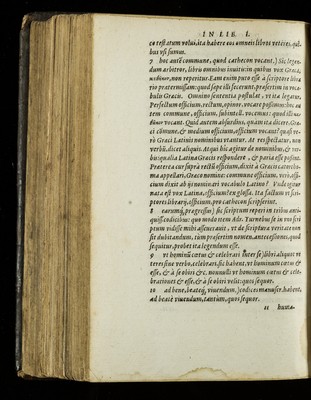 IN LIB. I.
co testatum volui, ita habere eos omnes libros veteres, qui-
bus vsi sumus.
7 hoc autē commune, quod cathecon vocant.) Sic legen-
dum arbitror, libris omnibus inuitis: in quibus vox Græca,
non reperitur. Eam enim puto esse à scriptore libra
rio prætermissam: quod sæpe illi fecerunt, præsertim in voca-
bulis Græcis. Omnino sententia postulat, vt ita legatur,
Perfectum officium, rectum, opinor, vocare possimus: hoc au
tem commune, officium, subintell. vocemus: quod illi
vocant. Quid autem absurdius, quàm ita dicere, Græ-
ci cōmune, & medium officium, officium vocant? quasi ve-
rò Græci Latinis nominibus vtantur. At respectatur, non
verbū, dicet aliquis. Atqui hîc agitur de nominibus, & ver-
bis: qualia Latina Græcis respondere, & paria esse possint.
Præterea cùm suprà rectū officium, dixit à Græcis catortho-
ma appellari, Græco nomine: commune officium, verisi-
cium dixit ab ijs nominari vocabulo Latino? Vnde igitur
nata est vox Latina, officium? ex glossa. Ita factum vt scri-
ptores librarij, officium, pro cathecon scripserint.
8 earumq́; progressus) sic scriptum reperi in tribus anti-
quiss. codicibus: quo modo item Ads. Turnebus se in vno scri
ptum vidisse mihi asseuerauit, vt de scriptura veritate non
sit dubitandum, cùm præsertim nomen, antecessiones, quod
sequitur, probet ita legendum esse.
9 vt hominū cœtus & celebrari inter se) libri aliquot vt
teres sine verbo, celebrari, sic habent, vt hominum cœtus &
esse, & à se obiri &c. nonnulli vt hominum cœtus & cele-
brationes & esse, & à se obiri velit: quos sequor.
10 ad bene, beateq́; viuendum.) codices manuscr. habent,
ad beatè viuendum, tantùm, quos sequor.
11 homa-